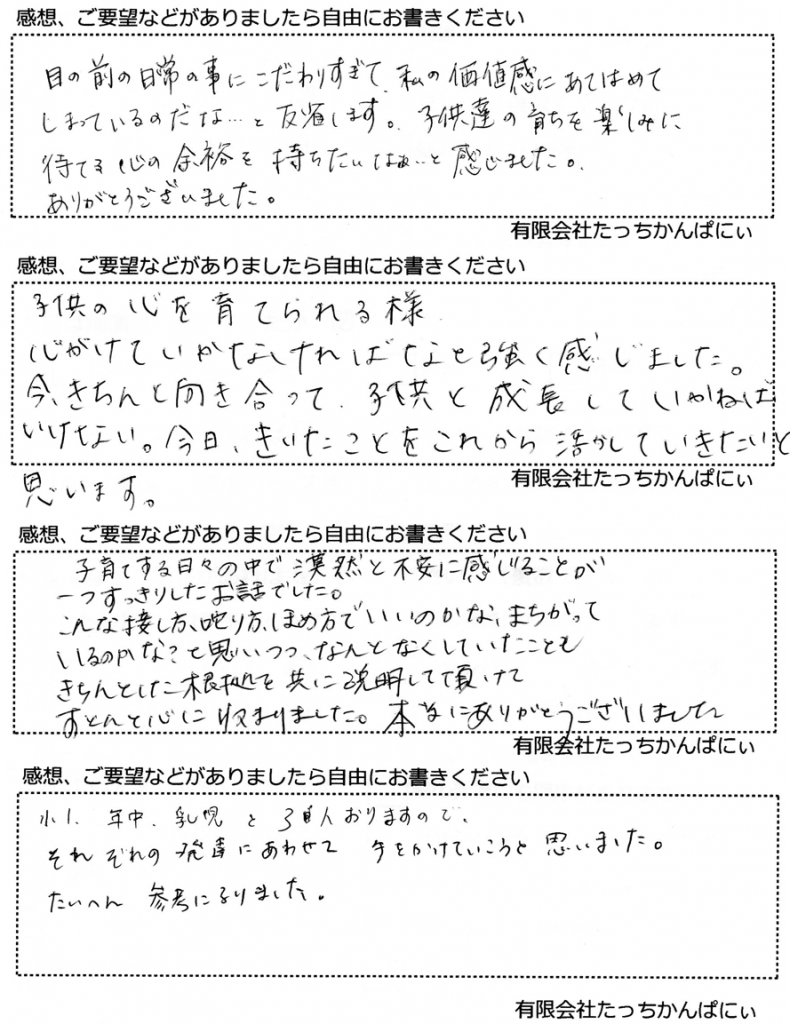 感想、ご要望などがありましたら自由にお書きください
目の前の日常の事にこだわりすぎて、私の価値感にあてはめて
しまっているのだな…と反省します。子供達の育ちを楽しみに
待てる心の余裕を持ちたいなぁ…と感じました。
ありがとうございました。
有限会社たっちかんぱにぃ
感想、ご要望などがありましたら自由にお書きください
子供の心を育てられる様
心がけていかなければなと強く感じました。
今、きちんと向き合って、子供と成長していかねば
いけない。今日、きいたことをこれから活かしていきたいと
思います。
有限会社たっちかんぱにぃ
感想、ご要望などがありましたら自由にお書きください
子育てする日々の中で漠然と不安に感じることが
一つすっきりしたお話でした。
こんな接し方、叱り方、ほめ方でいいのかな、まちがって
いるのかな?と思いつつ、なんとなくしていたことも
きちんとした根拠と共に説明して頂けて
すとんと心に収まりました。本当にありがとうございました
有限会社たっちかんぱにぃ
感想、ご要望などがありましたら自由にお書きください
小1、年中、乳児と3人おりますので、
それぞれの発達にあわせて手をかけていこうと思いました。
たいへん参考になりました。
有限会社たっちかんぱにぃ